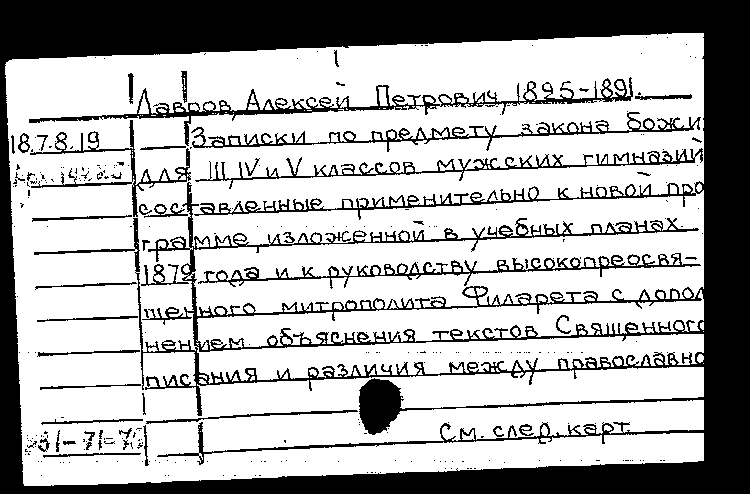 Лавров, Алексей Петрович, 1895-1891.
18.7.8.19 Записки по предмету закона божи
для III, IV и V классов мужских гимназий
составленные применительно к новой про
грамме, изложенной в учебных планах.
1872 года и к руководству высокопреосвя-
щенного митрополита Филарета с допол
нением объяснения текстов Священного
писания и различия между православно
См. след. карт